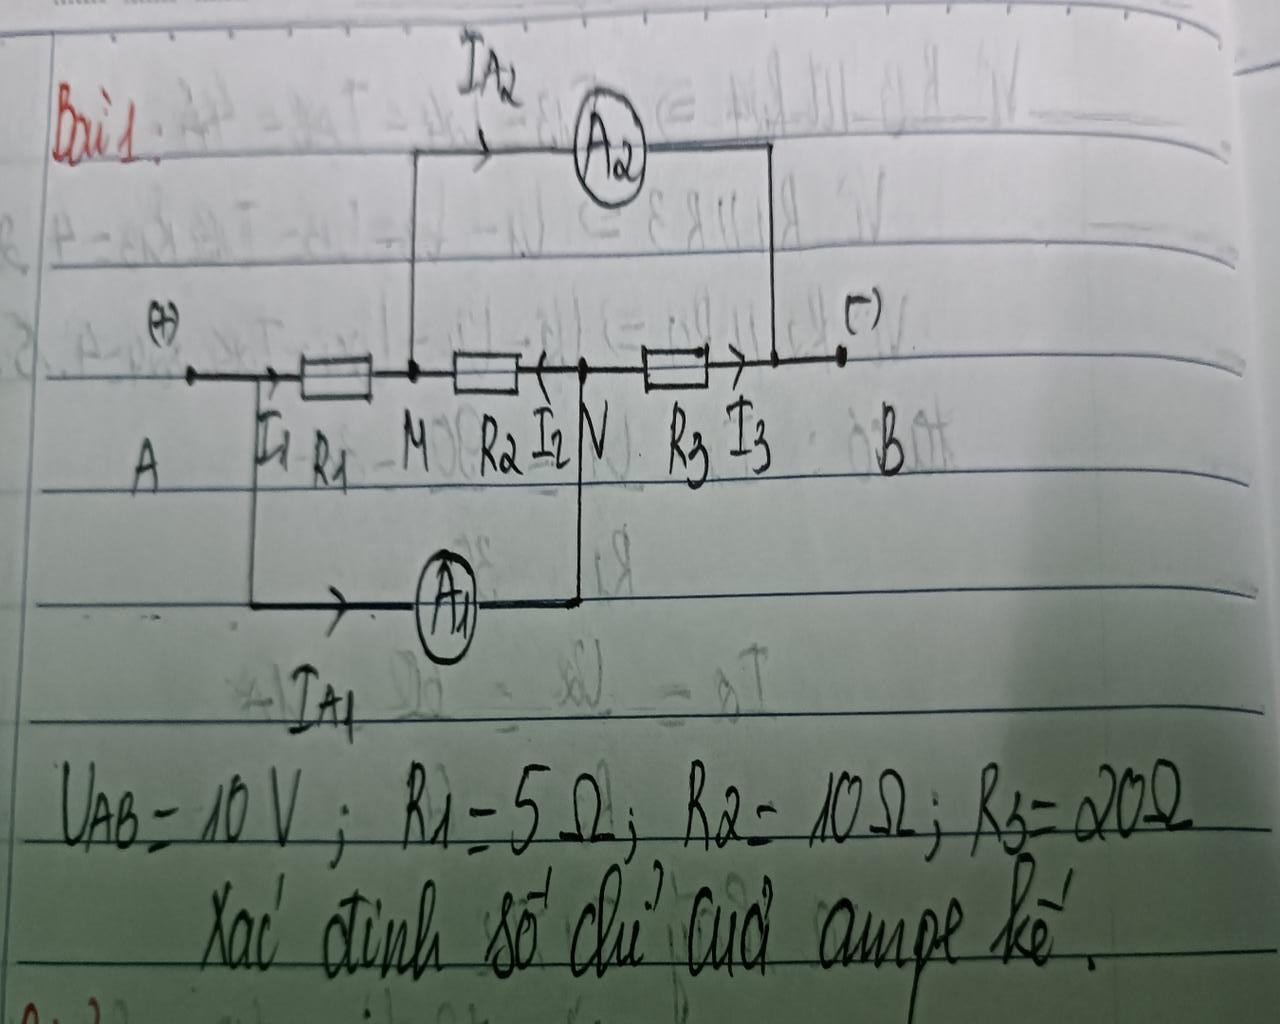 Bài 1:
IA2
A2
(+)
(-)
A
I1
R1
M
R2
I2
N
R3
I3
B
A1
IA1
UAB = 10 V ; R1 = 5 Ω ; R2 = 10 Ω ; R3 = 20 Ω
Xác định số chỉ của ampe kế.